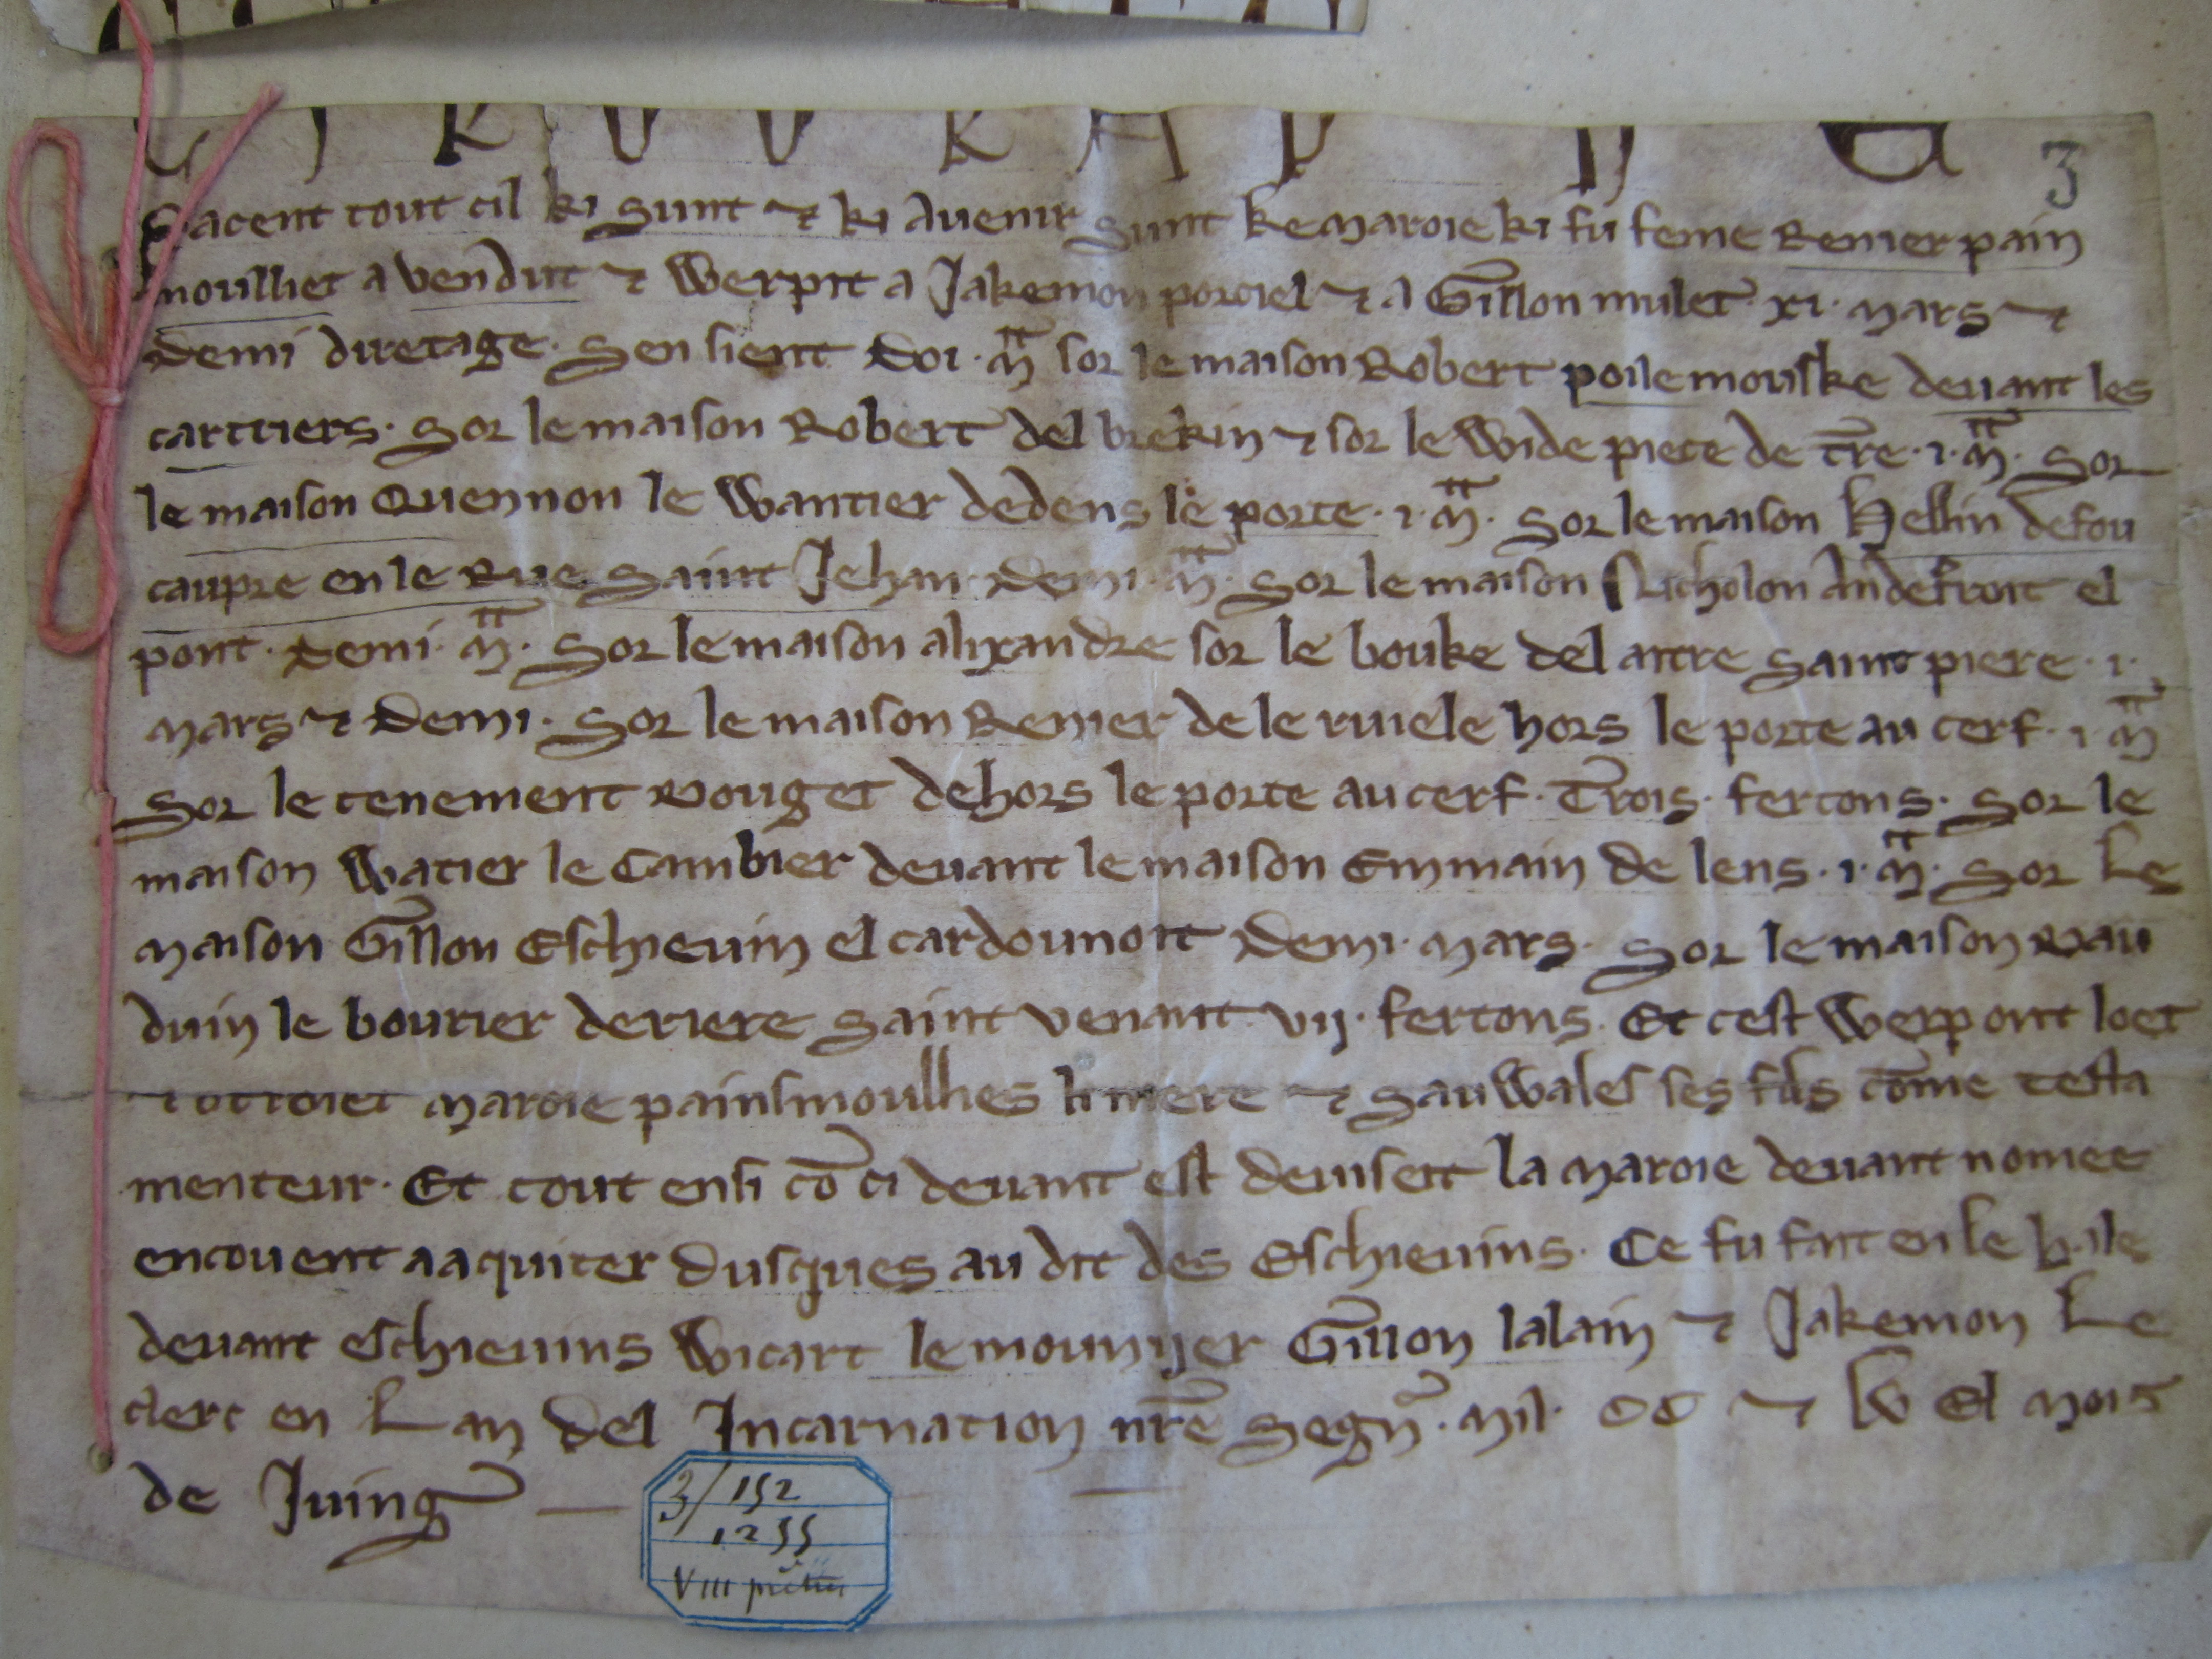 3
Sacent tout cil ki sunt ⁊ ki avenir sunt ke Maroie ki fu feme Renier pain
moulliet a vendut ⁊ werpit a Jakemon porciel ⁊ a Gillon mulet · xi · mars ⁊
demi diretage · Sen sient doi · m̄ · sor le maison Robert poilemouske devant les
carttiers · Sor le maison Robert del brekin ⁊ sor le wide piece de t̄re · i · m̄ · Sor
le maison Quennon le wantier dedens le porte · i · m̄ · Sor le maison Hellin defou
caupre en le Rue Saint Jehan · demi · m̄ · Sor le maison Nicholon Andefroit el
pont · demi · m̄ · Sor le maison alixandre sor le bouke del aitre Saint piere · i ·
mars ⁊ demi · Sor le maison Renier de le ruiele hors le porte au cerf · i · m̄
Sor le tenement Bouget dehors le porte au cerf · Trois · fertons · Sor le
maison Watier le Cambier devant le maison Emmain de lens · i · m̄ · Sor Le
maison Gillon Eschievin el cardounoit demi · mars · Sor le maison Bau
duin le bourier deriere Saint venant · vij · fertons · Et cest werp ont loet
⁊ otroiet Maroie painsmoullies li mere ⁊ Sauwales ses fius cōme testa
menteur · Et tout ensi cō ci devant est deviseit la Maroie devant nomee
encovent a aquiter dusques au dit des Eschievins · Ce fu fait en le hale
devant eschievins Wicart le mounijer Gillon lalain ⁊ Jakemon Le
clerc en Lan del Incarnation nr̄e Segn̄ · Mil · CC ⁊ LV El mois
de Juing
3/152
1255
VIII